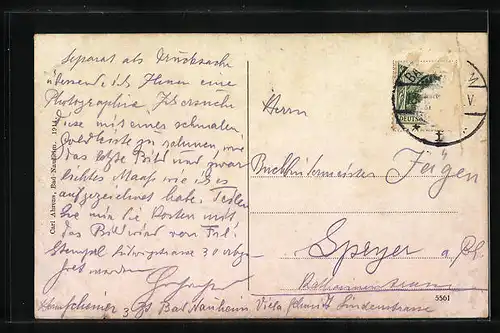 Separat als Drucksache
übersende ich Ihnen eine
Photographie. Ich ersuche
diese mit einer schmalen
Goldleiste zu rahmen, wie
das letzte Bild und zwar
lichtes Maaß wie ich es
aufgezeichnet habe. Teilen
Sie mir die Kosten mit
das Bild wird von Frl.
Stempel Ludwigstrasse 30 abge-
holt werden
3 Bad Nauheim, Villa Schmidt Lindenstrasse
Carl Ahrens, Bad-Nauheim. 1914.
Herrn
Buchbindermeister Jägen
Speyer a/Rh
BA
M
V.
DEUTSCHES
5561